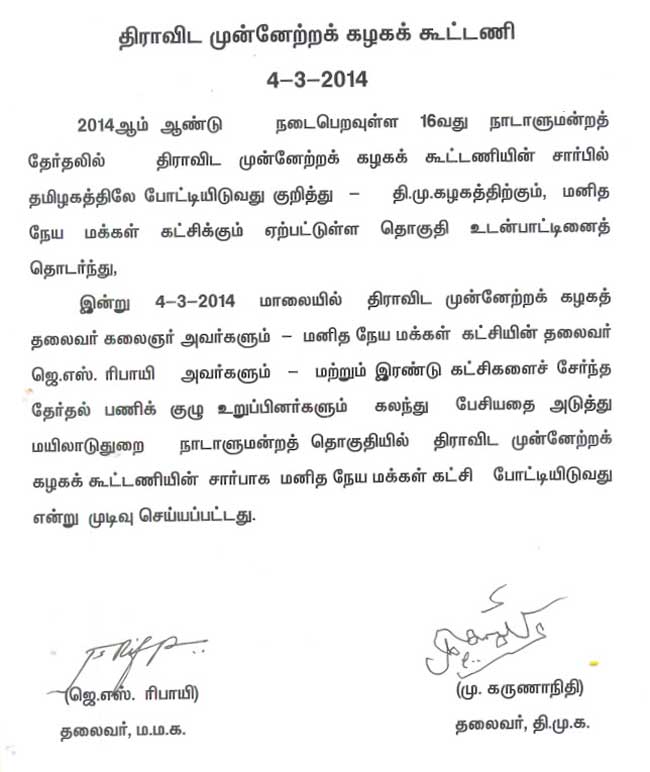 திராவிட முன்னேற்றக் கழகக் கூட்டணி
4–3–2014
2014ஆம் ஆண்டு நடைபெறவுள்ள 16வது நாடாளுமன்றத்
தேர்தலில் திராவிட முன்னேற்றக் கழகக் கூட்டணியின் சார்பில்
தமிழகத்திலே போட்டியிடுவது குறித்து – தி.மு.கழகத்திற்கும், மனித
நேய மக்கள் கட்சிக்கும் ஏற்பட்டுள்ள தொகுதி உடன்பாட்டினைத்
தொடர்ந்து,
இன்று 4–3–2014 மாலையில் திராவிட முன்னேற்றக் கழகத்
தலைவர் கலைஞர் அவர்களும் – மனித நேய மக்கள் கட்சியின் தலைவர்
ஜெ.எஸ். ரிபாயி அவர்களும் – மற்றும் இரண்டு கட்சிகளைச் சேர்ந்த
தேர்தல் பணிக் குழு உறுப்பினர்களும் கலந்து பேசியதை அடுத்து
மயிலாடுதுறை நாடாளுமன்றத் தொகுதியில் திராவிட முன்னேற்றக்
கழகக் கூட்டணியின் சார்பாக மனித நேய மக்கள் கட்சி போட்டியிடுவது
என்று முடிவு செய்யப்பட்டது.
(ஜெ.எஸ். ரிபாயி) (மு. கருணாநிதி)
தலைவர், ம.ம.க. தலைவர், தி.மு.க.